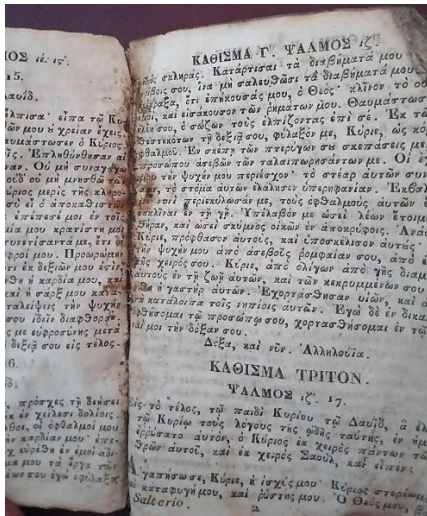 ΜΟΣ ιέ. ιϛ'.
15.
Δαυΐδ.
ἤλπισα· εἶπα τῷ Κυ
ῶν μου οὐ χρείαν ἔχεις.
αυμάστωσεν ὁ Κύριος
ῖς. Ἐπληθύνθησαν αἱ
αν. Οὐ μὴ συναγάγω
οὐδ' οὐ μὴ μνησθῶ τῶ
ύριος μερὶς τῆς κληρο
σὺ εἶ ὁ ἀποκαθιστῶ
ἐπέπεσέ μοι ἐν τοῖς
μία μου κρατίστη μοι
συνετίσαντά με, ἔτι δὲ
φροί μου. Προωρώμην
ὅτι ἐκ δεξιῶν μού ἐστιν,
νθη ἡ καρδία μου, καὶ
αὶ ἡ σάρξ μου κατα
ταλείψεις τὴν ψυχήν
σου ἰδεῖν διαφθοράν.
ς με εὐφροσύνης μετὰ
δεξιᾷ σου εἰς τέλος.
6.
ίδ.
πρόσχες τῇ δεήσει
κ ἐν χείλεσι δολίοις.
λθοι, οἱ ὀφθαλμοί μου
ὴν καρδίαν μου· ἐπε-
χ εὑρέθη ἐν ἐμοὶ ἀδι-
μα μου τὰ ἔργα τῶν
έων σου ἐγὼ ἐφύλαξα
ΚΑΘΙΣΜΑ Γ'. ΨΑΛΜΟΣ ιζ'.
σκληράς. Κατάρτισαι τὰ διαβήματά μου
τρίβοις σου, ἵνα μὴ σαλευθῶσι τὰ διαβήματά μου.
ἐκέκραξα, ὅτι ἐπήκουσάς μου, ὁ Θεός· κλῖνον τὸ οὖς
μοι, καὶ εἰσάκουσον τῶν ῥημάτων μου. Θαυμάστωσον
ἐλέη σου, ὁ σώζων τοὺς ἐλπίζοντας ἐπὶ σέ. Ἐκ τῶν
θεστηκότων τῇ δεξιᾷ σου, φύλαξόν με, Κύριε, ὡς κό
ὀφθαλμοῦ. Ἐν σκέπῃ τῶν πτερύγων σου σκεπάσεις με
προσώπου ἀσεβῶν τῶν ταλαιπωρησάντων με. Οἱ ἐχ
μου τὴν ψυχήν μου περιέσχον· τὸ στέαρ αὐτῶν συν
σαν, τὸ στόμα αὐτῶν ἐλάλησεν ὑπερηφανίαν. Ἐκβαλ
νυνὶ περιεκύκλωσάν με, τοὺς ὀφθαλμοὺς αὐτῶν ἔ
ἐκκλῖναι ἐν τῇ γῇ. Ὑπέλαβόν με ὡσεὶ λέων ἕτοιμο
θήραν, καὶ ὡσεὶ σκύμνος οἰκῶν ἐν ἀποκρύφοις. Ἀνάσ
Κύριε, πρόφθασον αὐτούς, καὶ ὑποσκέλισον αὐτούς·
τὴν ψυχήν μου ἀπὸ ἀσεβοῦς ῥομφαίαν σου, ἀπὸ ἐ
τῆς χειρός σου. Κύριε, ἀπὸ ὀλίγων ἀπὸ γῆς διαμ
αὐτοὺς ἐν τῇ ζωῇ αὐτῶν, καὶ τῶν κεκρυμμένων σου
ἡ γαστὴρ αὐτῶν. Ἐχορτάσθησαν υἱῶν, καὶ ἀ
τὰ κατάλοιπα τοῖς νηπίοις αὐτῶν. Ἐγὼ δὲ ἐν δικαι
ὀφθήσομαι τῷ προσώπῳ σου, χορτασθήσομαι ἐν τῷ
ναί μοι τὴν δόξαν σου.
Δόξα, καὶ νῦν. Ἀλληλούϊα.
ΚΑΘΙΣΜΑ ΤΡΙΤΟΝ.
ΨΑΛΜΟΣ ιζ'. 17.
Εἰς τὸ τέλος, τῷ παιδὶ Κυρίου τῷ Δαυΐδ, ἃ ἐλ
τῷ Κυρίῳ τοὺς λόγους τῆς ᾠδῆς ταύτης, ἐν ἡμ
ἐρρύσατο αὐτόν, ὁ Κύριος ἐκ χειρὸς πάντων τῶ
θρῶν αὐτοῦ, καὶ ἐκ χειρὸς Σαούλ, καὶ εἶπεν·
Ἀγαπήσω σε, Κύριε, ἡ ἰσχύς μου· Κύριος στερέωμ
καὶ καταφυγή μου, καὶ ῥύστης μου. Ὁ Θεός μου, β
Salterio. 2